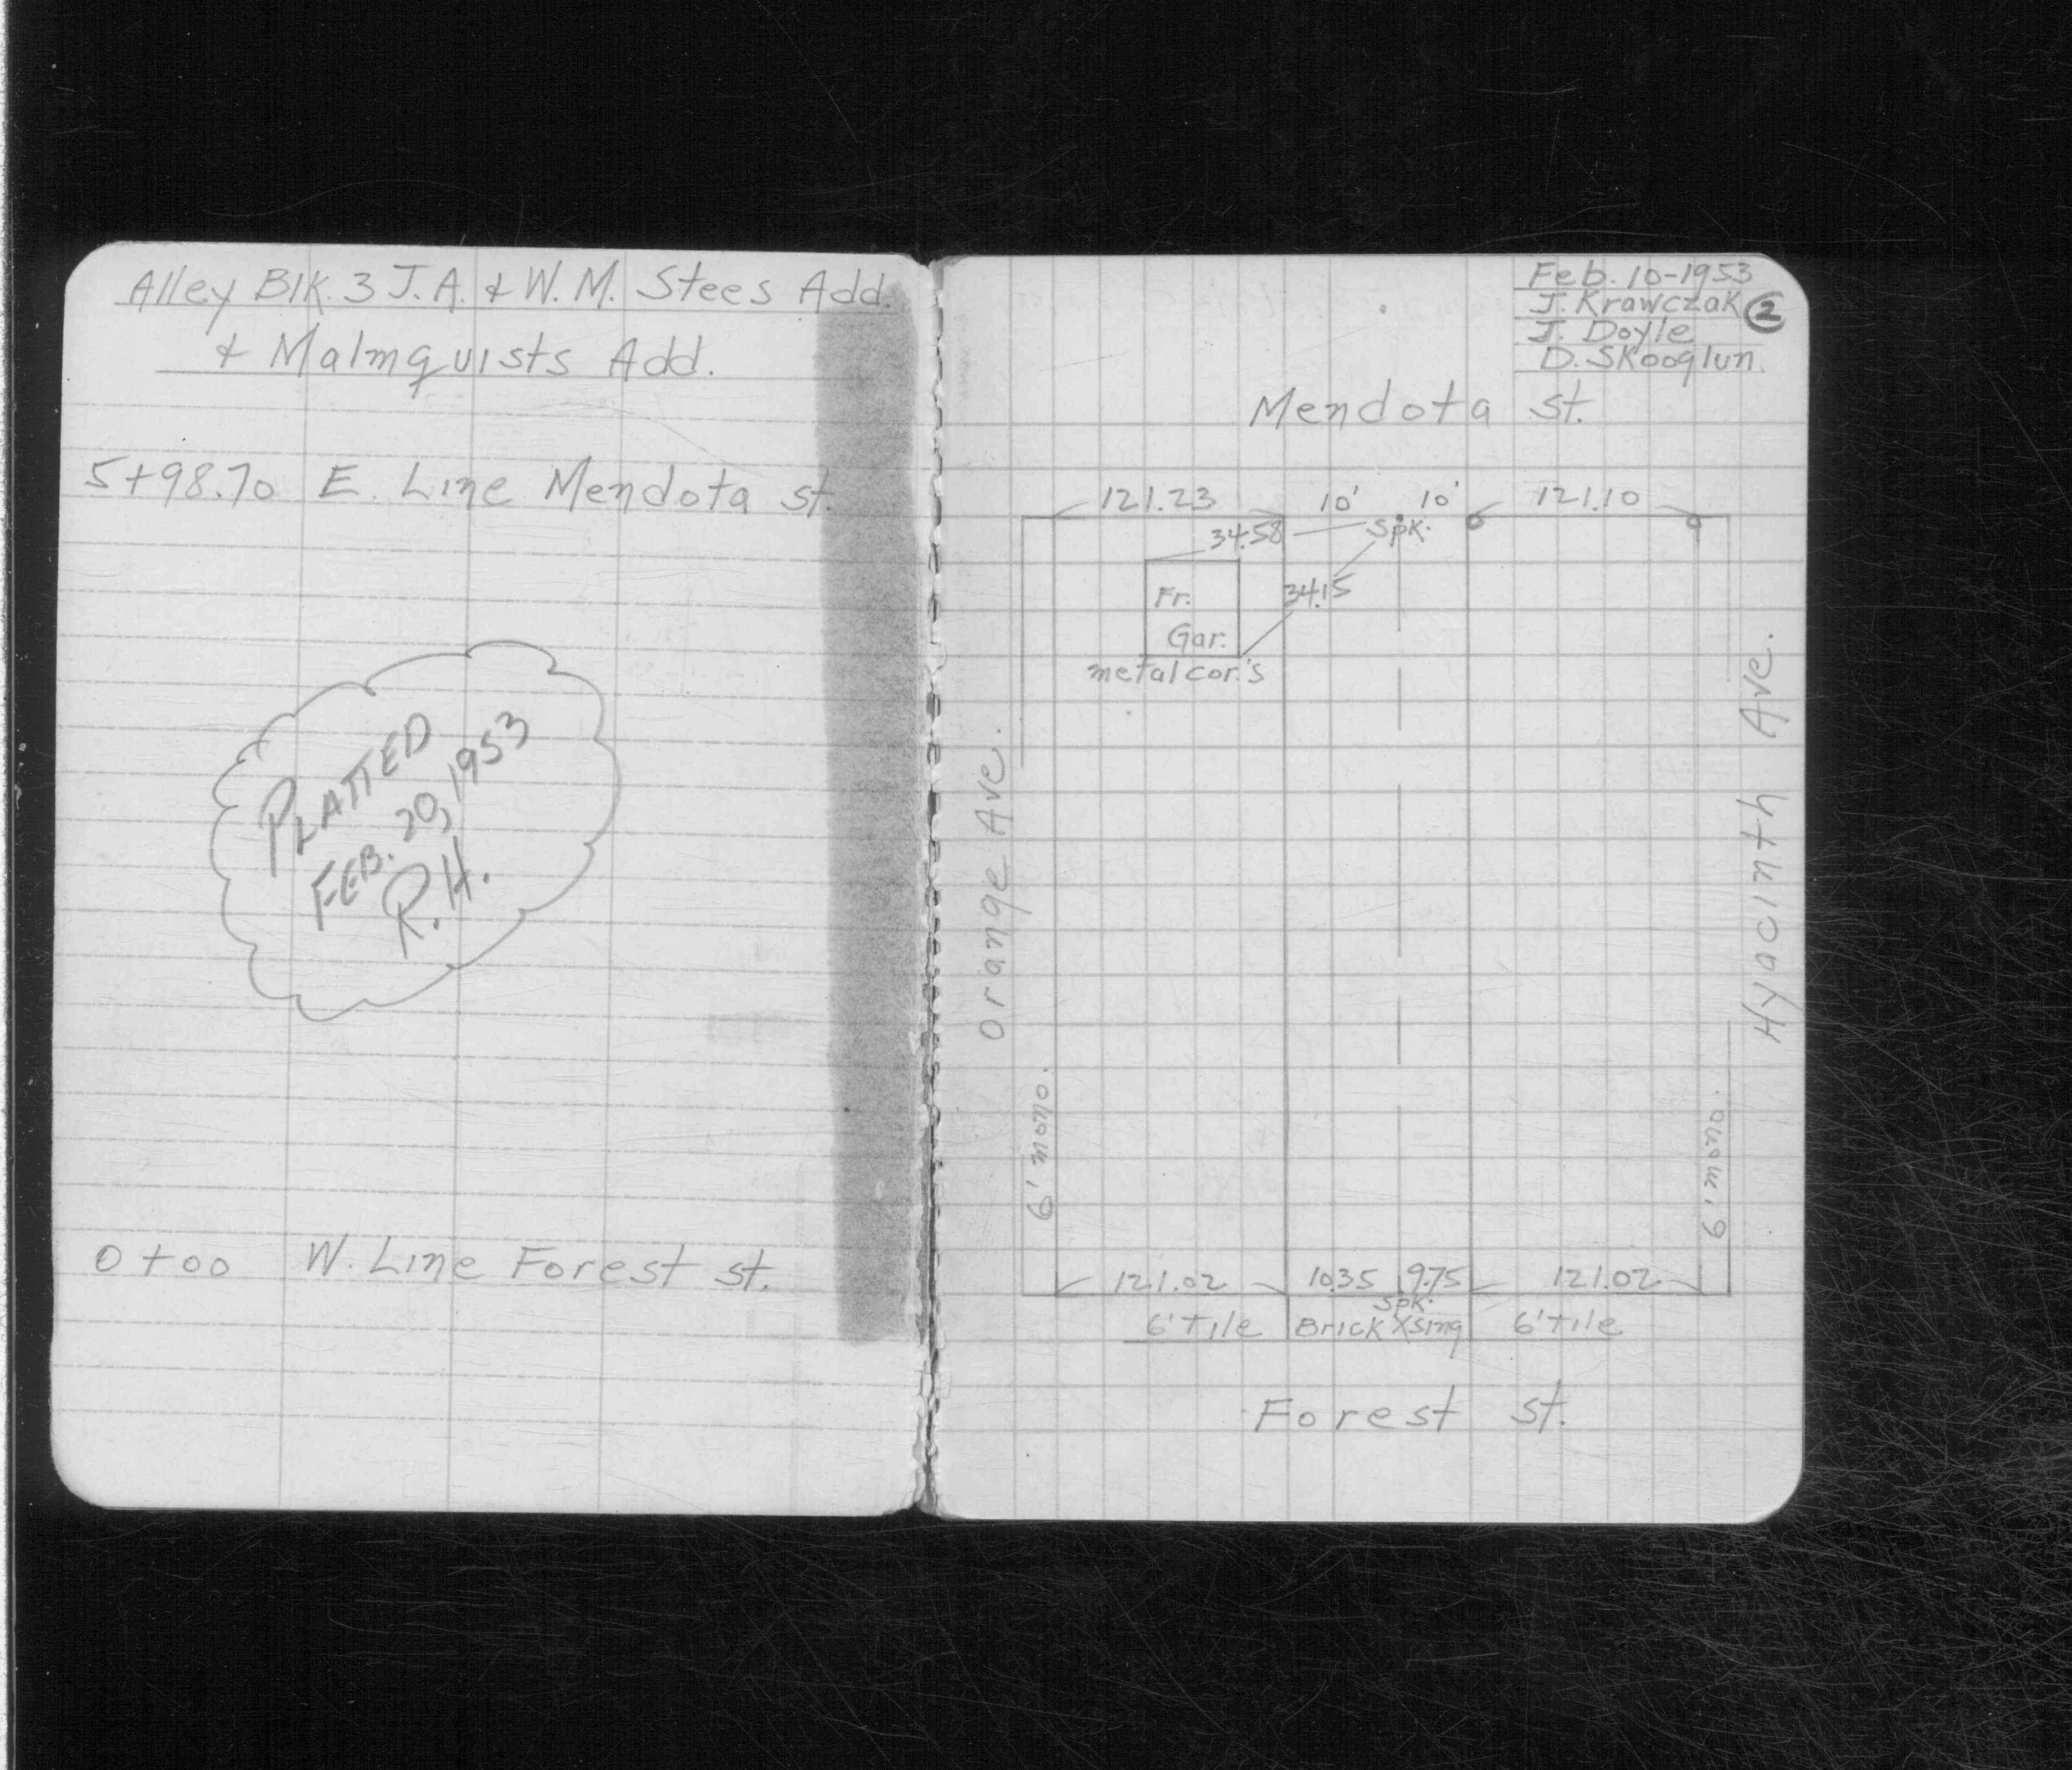 Alley Blk. 3 J.A. & W.M. Stees Add.
& Malmquists Add.
5+98.70 E. Line Mendota st.
PLATTED
FEB. 20, 1953
R.H.
0+00 W. Line Forest st.
Feb. 10-1953
J. Krawczak 2
J. Doyle
D. Skooglun.
Mendota st.
121.23 10' 10' 121.10
34.58 Spk.
34.15
Fr.
Gar.
metal cor.'s
Orange Ave.
Hyacinth Ave.
6' mono.
6' mono.
121.02 10.35 9.75 121.02
Spk.
6' tile Brick Xsing 6' tile
Forest st.